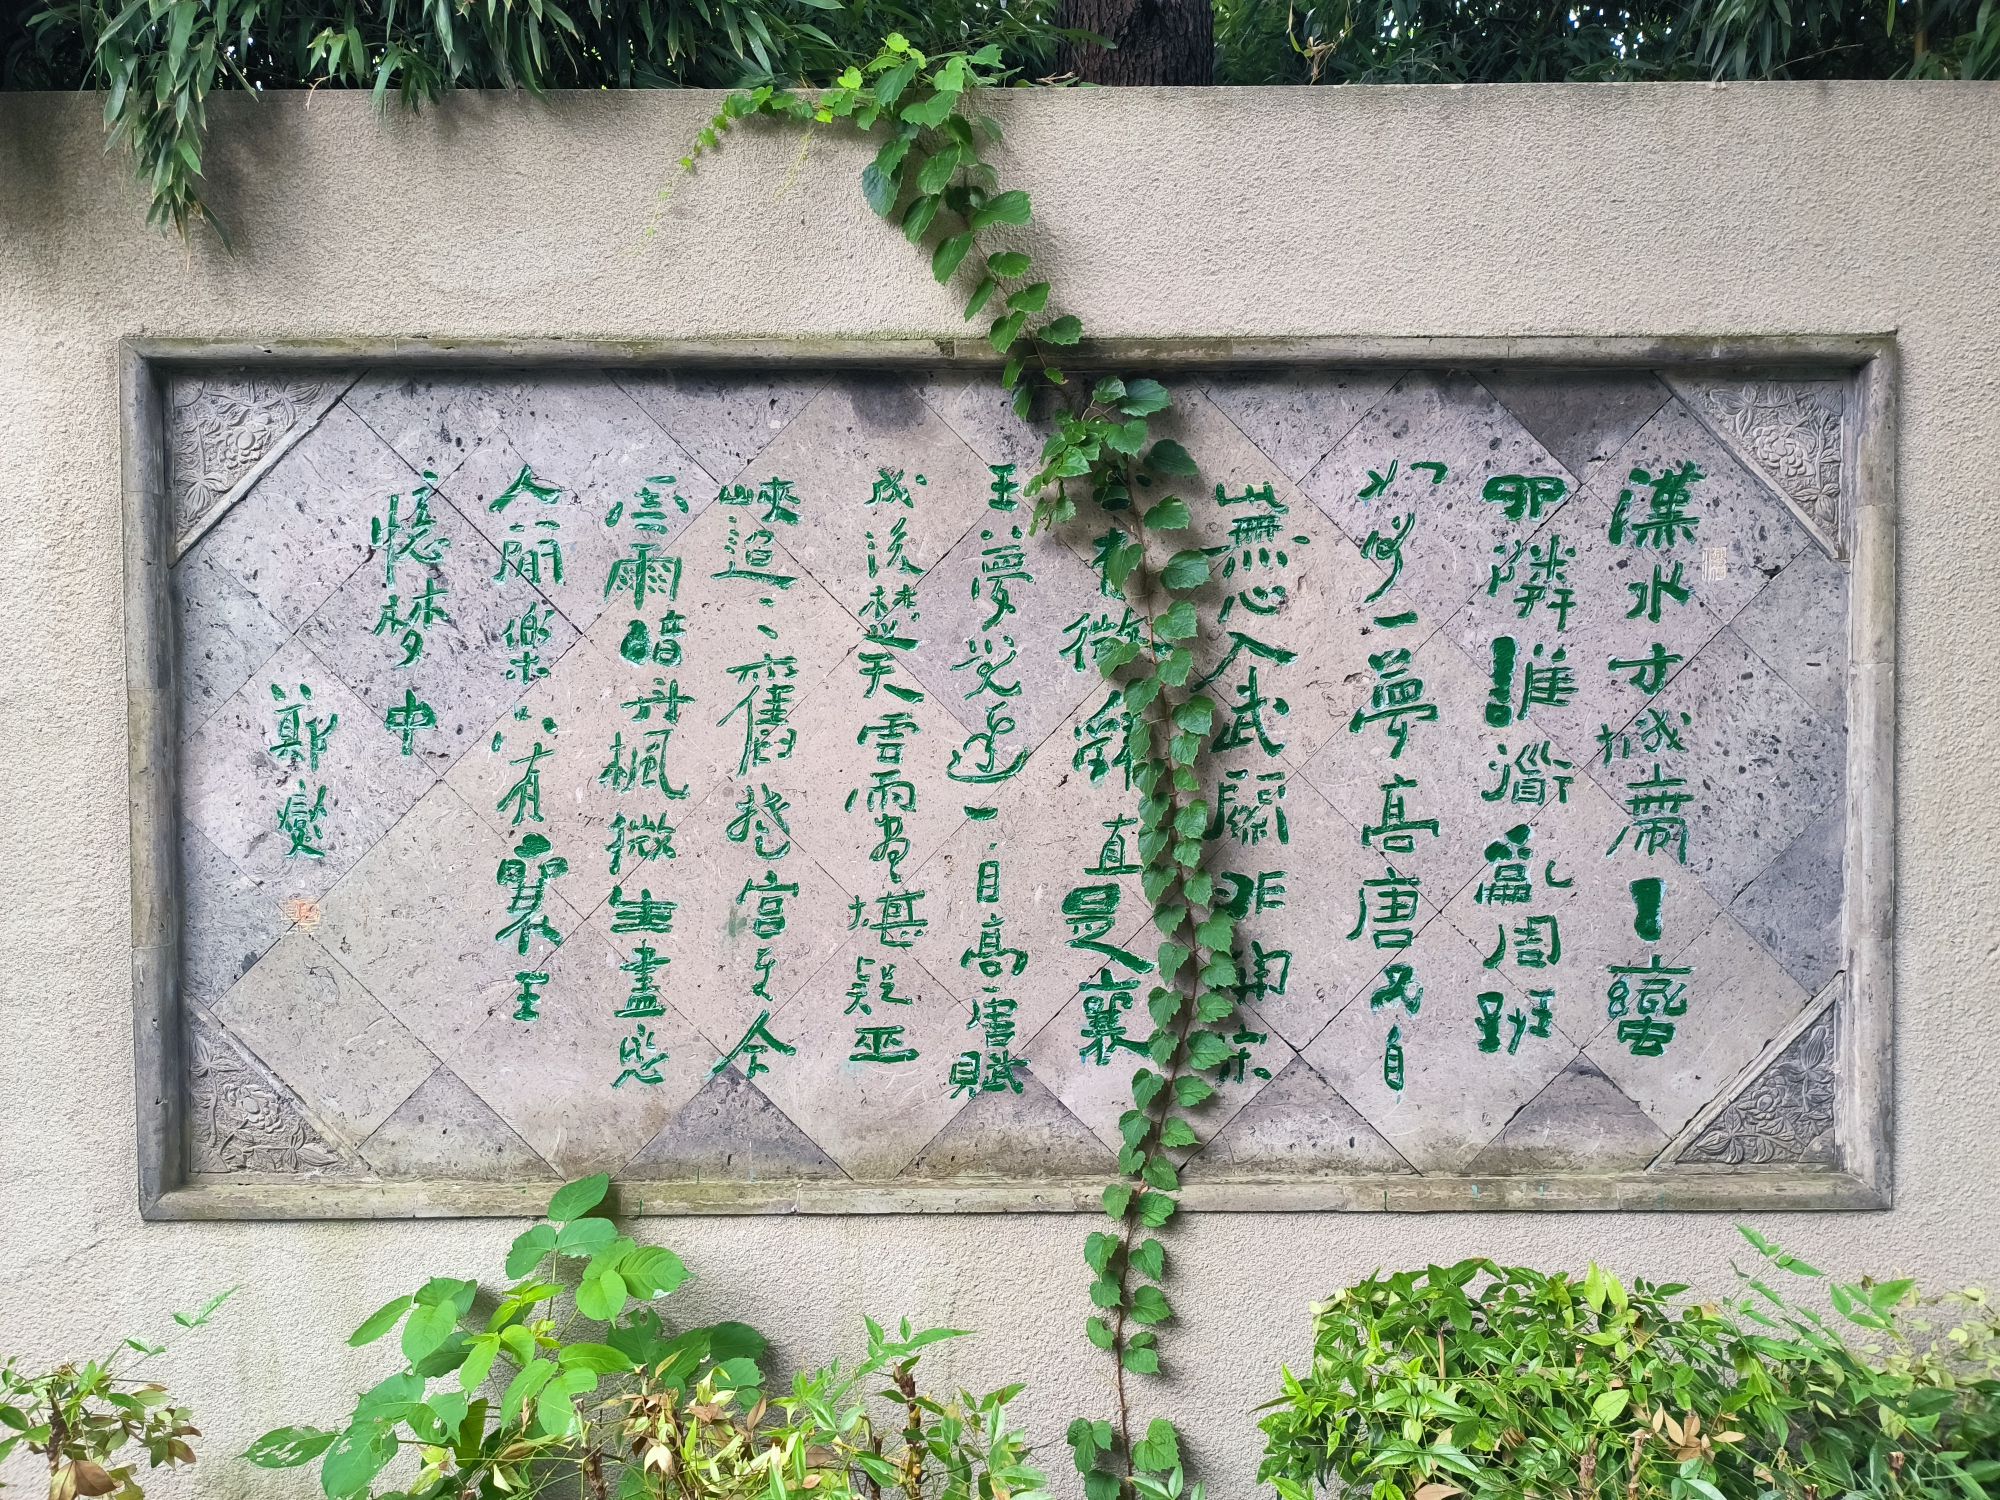 漢水方城帶蠻
四隣誰衜亂周班
如何一夢高唐雨自
無心入武關非關宋
有微辭直是襄
王夢覺遲一自高唐賦
成後楚天雲雨盡堪疑巫
峽迢〻舊楚宮至今
雲雨暗丹楓微生盡戀
人間樂只有襄王
憶梦中
鄭燮